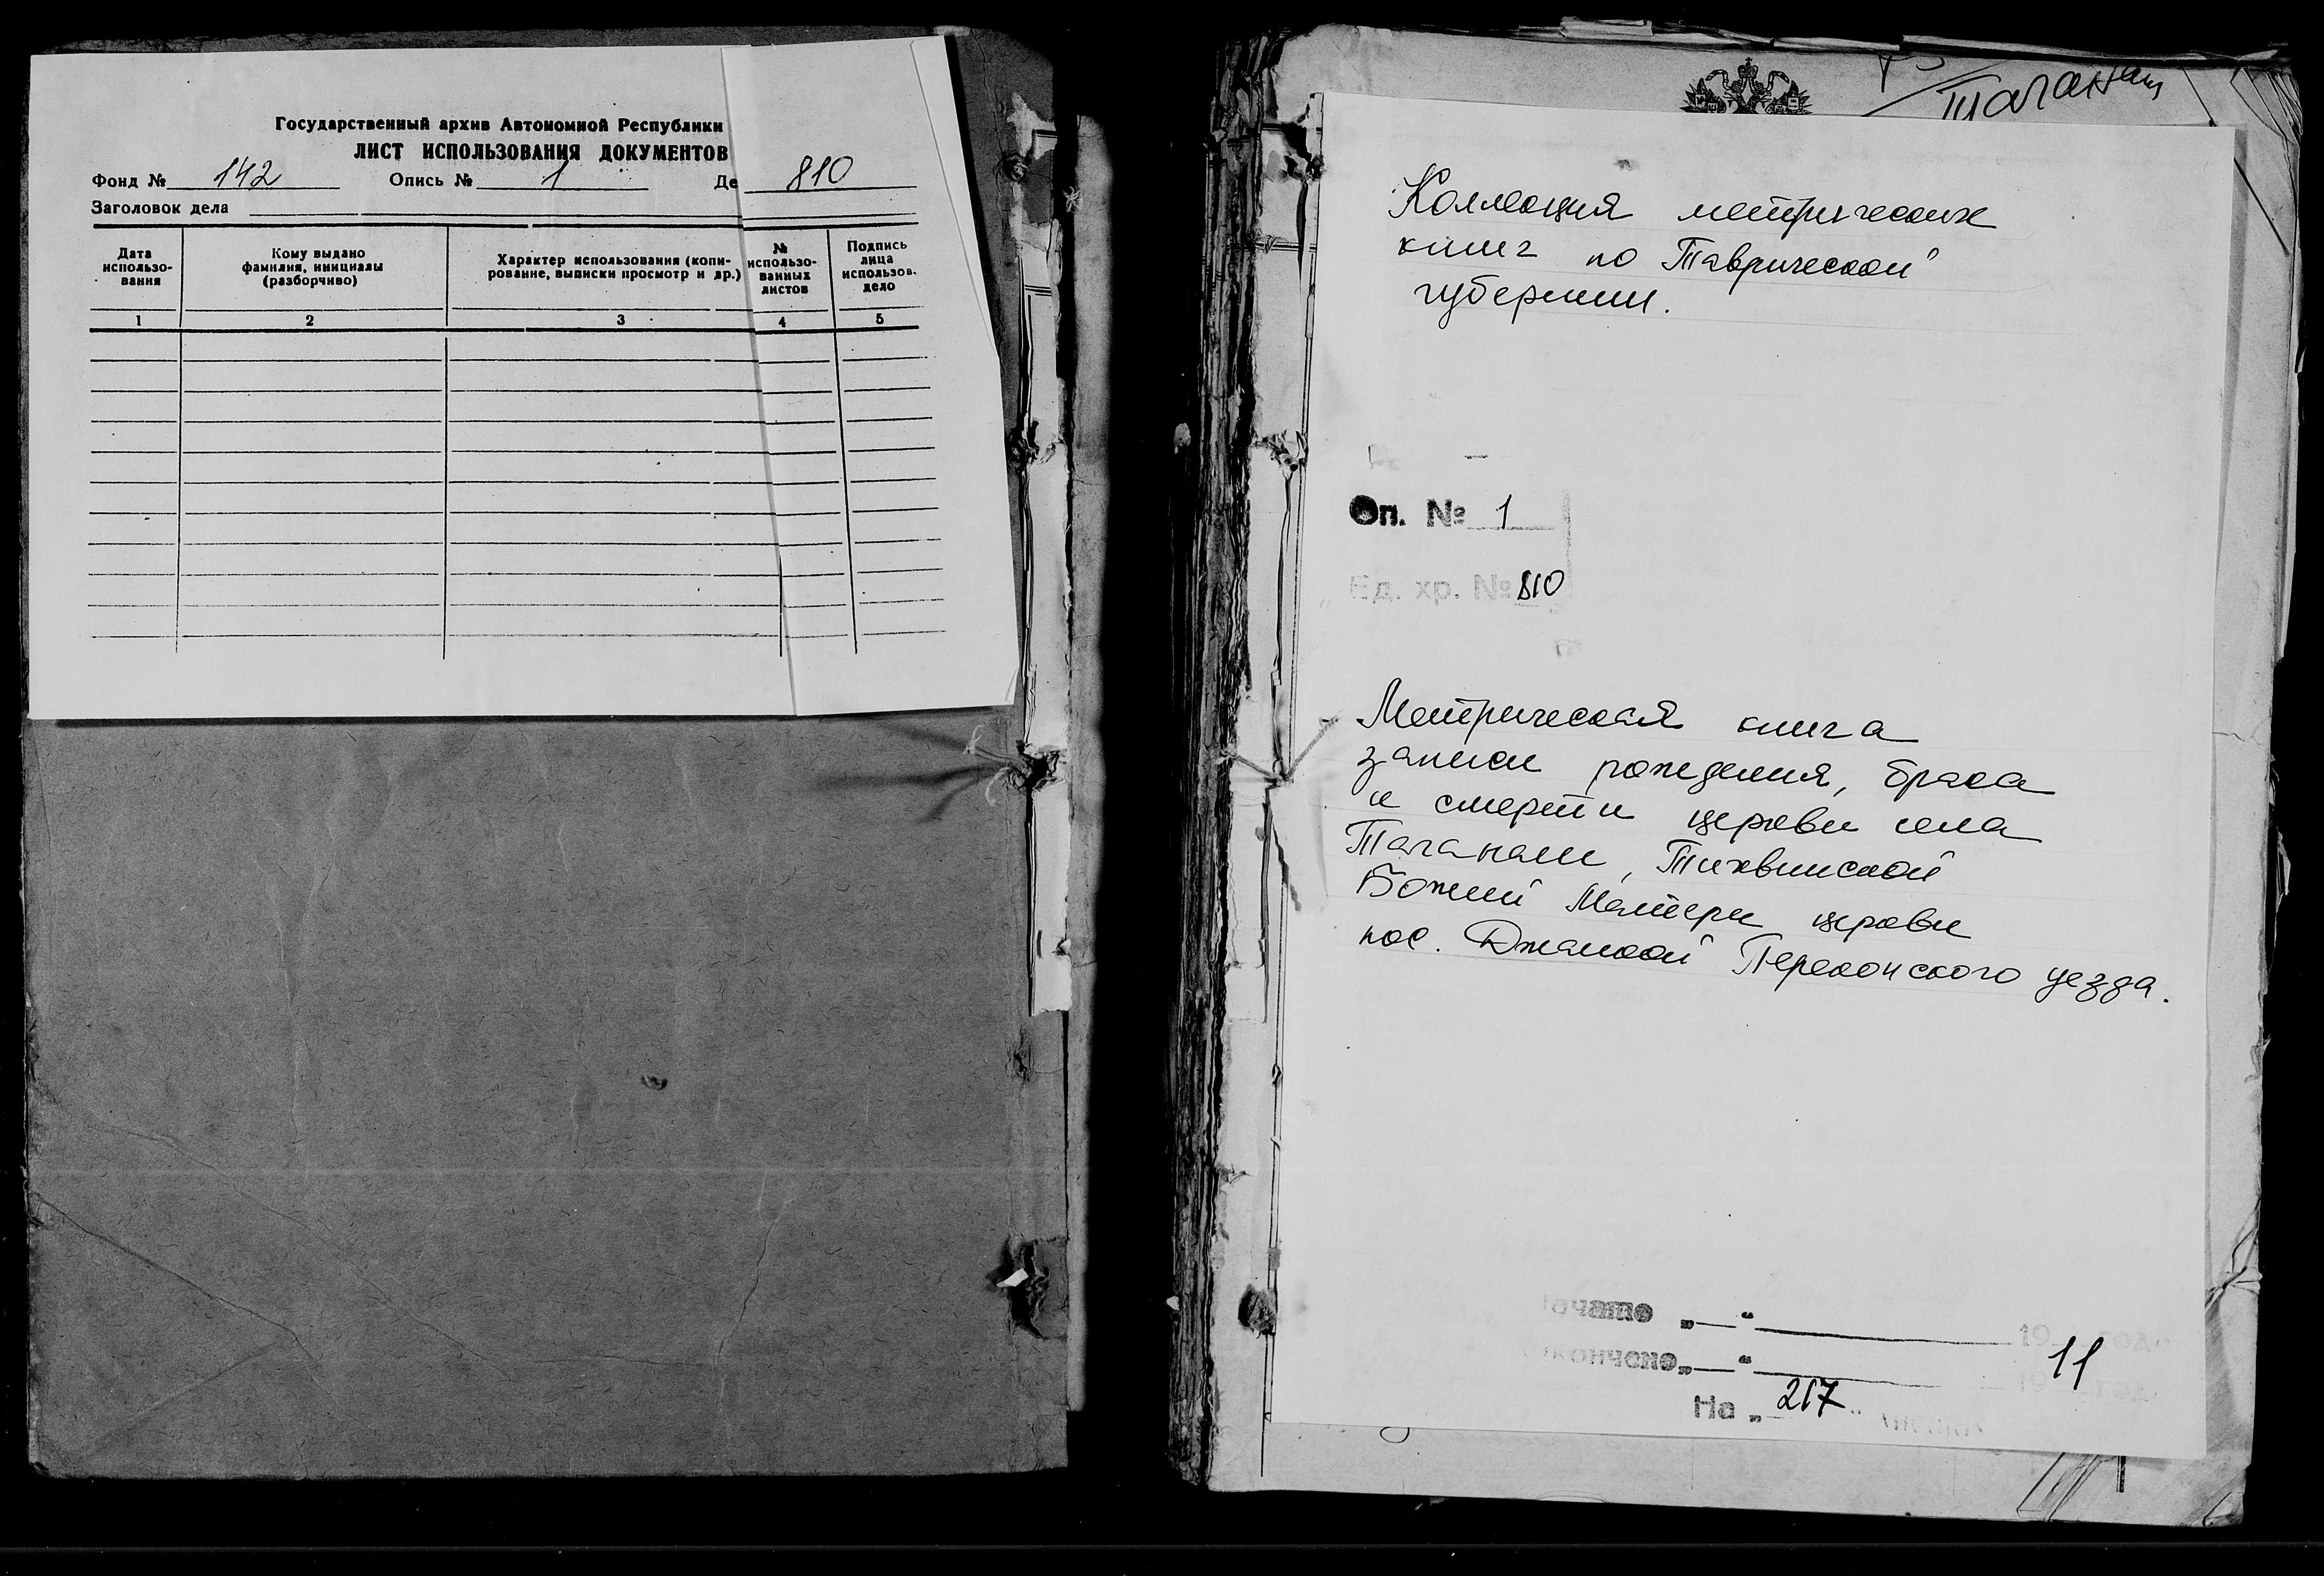 Государственный архив Автономной Республики
ЛИСТ ИСПОЛЬЗОВАНИЯ ДОКУМЕНТОВ
Фонд № 142 Опись № 1 Де 810
Заголовок дела
Дата использо-вания
Кому выдано фамилия, инициалы (разборчиво)
Характер использования (копи-рование, выписки просмотр и др.)
№ использо-ванных листов
Подпись лица использов. дело
1 2 3 4 5
Таганаш
Коллекция метрических
книг по Таврической
губернии.
Оп. № 1
Ед. хр. № 810
Метрическая книга
записи рождения, брака
и смерти церкви села
Таганаш, Тихвинской
Божией Матери церкви
пос. Джанкой Перекопского уезда.
начато „—“ 19
окончено „—“ 11
На „ 217 “